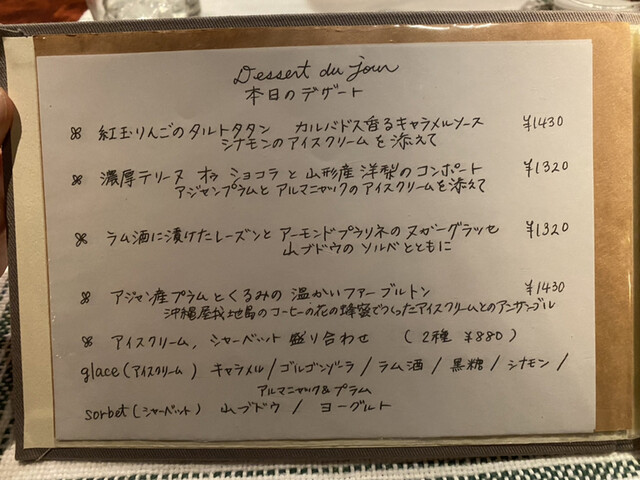 Dessert du jour
本日のデザート
紅玉りんごのタルトタタン カルバドス香るキャラメルソース ¥1430
シナモンのアイスクリームを添えて
濃厚テリーヌ オ ショコラと山形産 洋梨のコンポート ¥1320
アジャンプラムとアルマニャックのアイスクリームを添えて
ラム酒に漬けたレーズンとアーモンドプラリネのヌガーグラッセ ¥1320
山ブドウのソルベとともに
アジャン産プラムとくるみの温かいファーブルトン ¥1430
沖縄屋我地島のコーヒーの花の蜂蜜でつくったアイスクリームとのアンサンブル
アイスクリーム、シャーベット 盛り合わせ (2種 ¥880)
glace(アイスクリーム) キャラメル/ゴルゴンゾーラ/ラム酒/黒糖/シナモン/
アルマニャック&プラム
sorbet(シャーベット) 山ブドウ / ヨーグルト